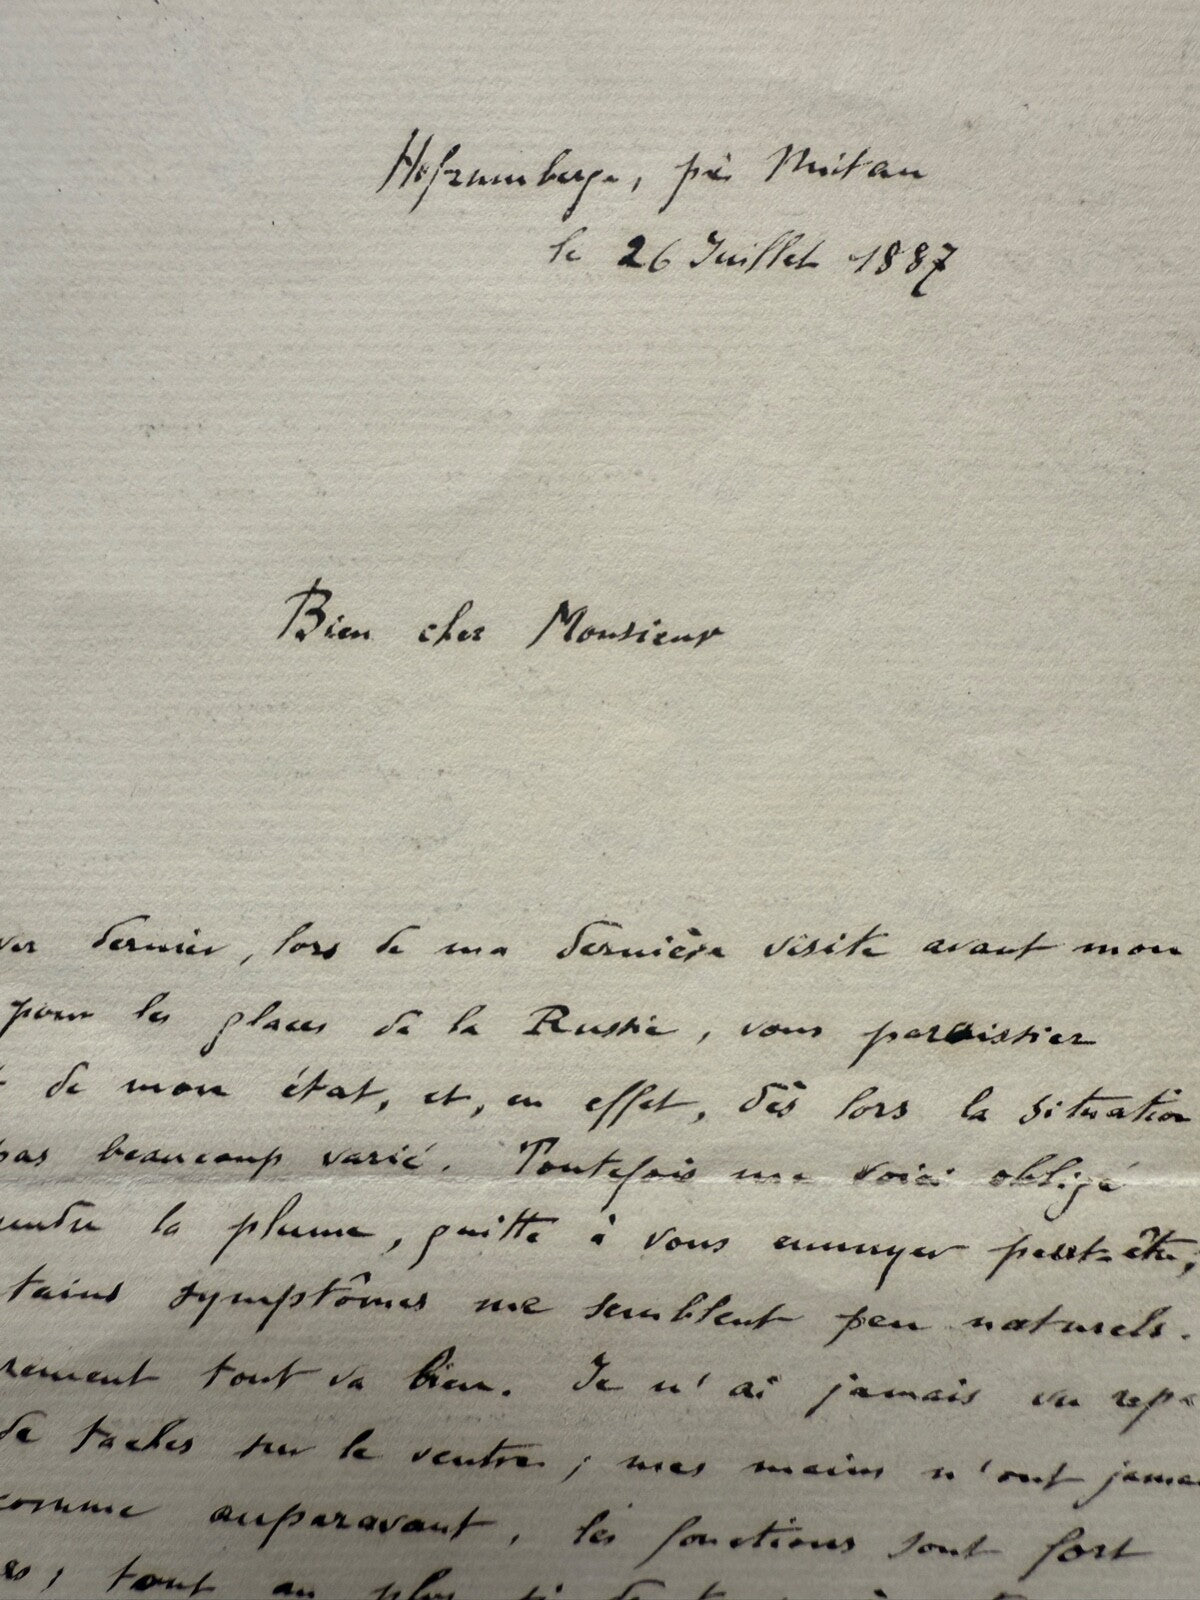 Hofzumberge, près Mitau
le 26 Juillet 1887
Bien cher Monsieur
ver dernier, lors de ma dernière visite avant mon
pour les glaces de la Russie, vous paraissiez
de mon état, et, en effet, dès lors la situation
pas beaucoup varié. Toutefois me voici obligé
la plume, quitte à vous ennuyer peut-être,
tains symptômes me semblent peu naturels.
rement tout va bien. Je n'ai jamais vu repa
de taches sur le ventre ; mes mains n'ont jamai
comme auparavant, les fonctions sont fort
es ; tout au plus si